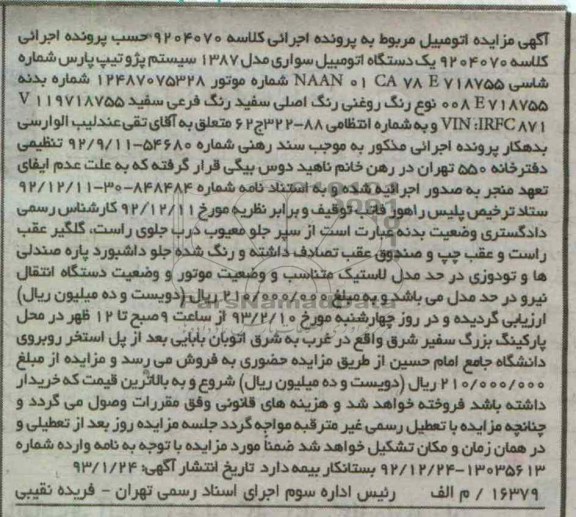 آگهی مزایده اتومبیل مربوط به پرونده اجرائی کلاسه ۹۲۰۴۰۷۰ حسب پرونده اجرائی
کلاسه ۹۲۰۴۰۷۰ یک دستگاه اتومبیل سواری مدل ۱۳۸۷ سیستم پژو تیپ پارس شماره
شاسی NAAN ۰۱ CA ۷۸ E ۷۱۸۷۵۵ شماره موتور ۱۲۴۸۷۰۷۵۳۲۸ شماره بدنه
۰۰۸ E ۷۱۸۷۵۵ نوع رنگ روغنی رنگ اصلی سفید رنگ فرعی سفید V ۱۱۹۷۱۸۷۵۵
VIN :IRFC ۸۷۱ و به شماره انتظامی ۸۸-۳۲۲ج۶۲ متعلق به آقای تقی عندلیب الوارسی
بدهکار پرونده اجرائی مذکور به موجب سند رهنی شماره ۵۴۶۸۰-۹۲/۹/۱۱ تنظیمی
دفترخانه ۵۵۰ تهران در رهن خانم ناهید دوس بیگی قرار گرفته که به علت عدم ایفای
تعهد منجر به صدور اجرائیه شده و به استناد نامه شماره ۸۴۸۴۸۴-۳۰-۹۲/۱۲/۱۱
ستاد ترخیص پلیس راهور فاتب توقیف و برابر نظریه مورخ ۹۲/۱۲/۱۱ کارشناس رسمی
دادگستری وضعیت بدنه عبارت است از سپر جلو معیوب درب جلوی راست، گلگیر عقب
راست و عقب چپ و صندوق عقب تصادف داشته و رنگ شده جلو داشبورد پاره صندلی
ها و تودوزی در حد مدل لاستیک متناسب و وضعیت موتور و وضعیت دستگاه انتقال
نیرو در حد مدل می باشد و به مبلغ ۲۱۰/۰۰۰/۰۰۰ ریال (دویست و ده میلیون ریال)
ارزیابی گردیده و در روز چهارشنبه مورخ ۹۳/۲/۱۰ از ساعت ۹ صبح تا ۱۲ ظهر در محل
پارکینگ بزرگ سفیر شرق واقع در غرب به شرق اتوبان بابایی بعد از پل استخر روبروی
دانشگاه جامع امام حسین از طریق مزایده حضوری به فروش می رسد و مزایده از مبلغ
۲۱۰/۰۰۰/۰۰۰ ریال (دویست و ده میلیون ریال) شروع و به بالاترین قیمت که خریدار
داشته باشد فروخته خواهد شد و هزینه های قانونی وفق مقررات وصول می گردد و
چنانچه مزایده با تعطیل رسمی غیر مترقبه مواجه گردد جلسه مزایده روز بعد از تعطیلی و
در همان زمان و مکان تشکیل خواهد شد ضمنا مورد مزایده با توجه به نامه وارده شماره
۱۳۰۳۵۶۱۳-۹۲/۱۲/۲۴ بستانکار بیمه دارد. تاریخ انتشار آگهی: ۹۳/۱/۲۴
۱۶۳۷۹ / م الف رئیس اداره سوم اجرای اسناد رسمی تهران - فریده نقیبی